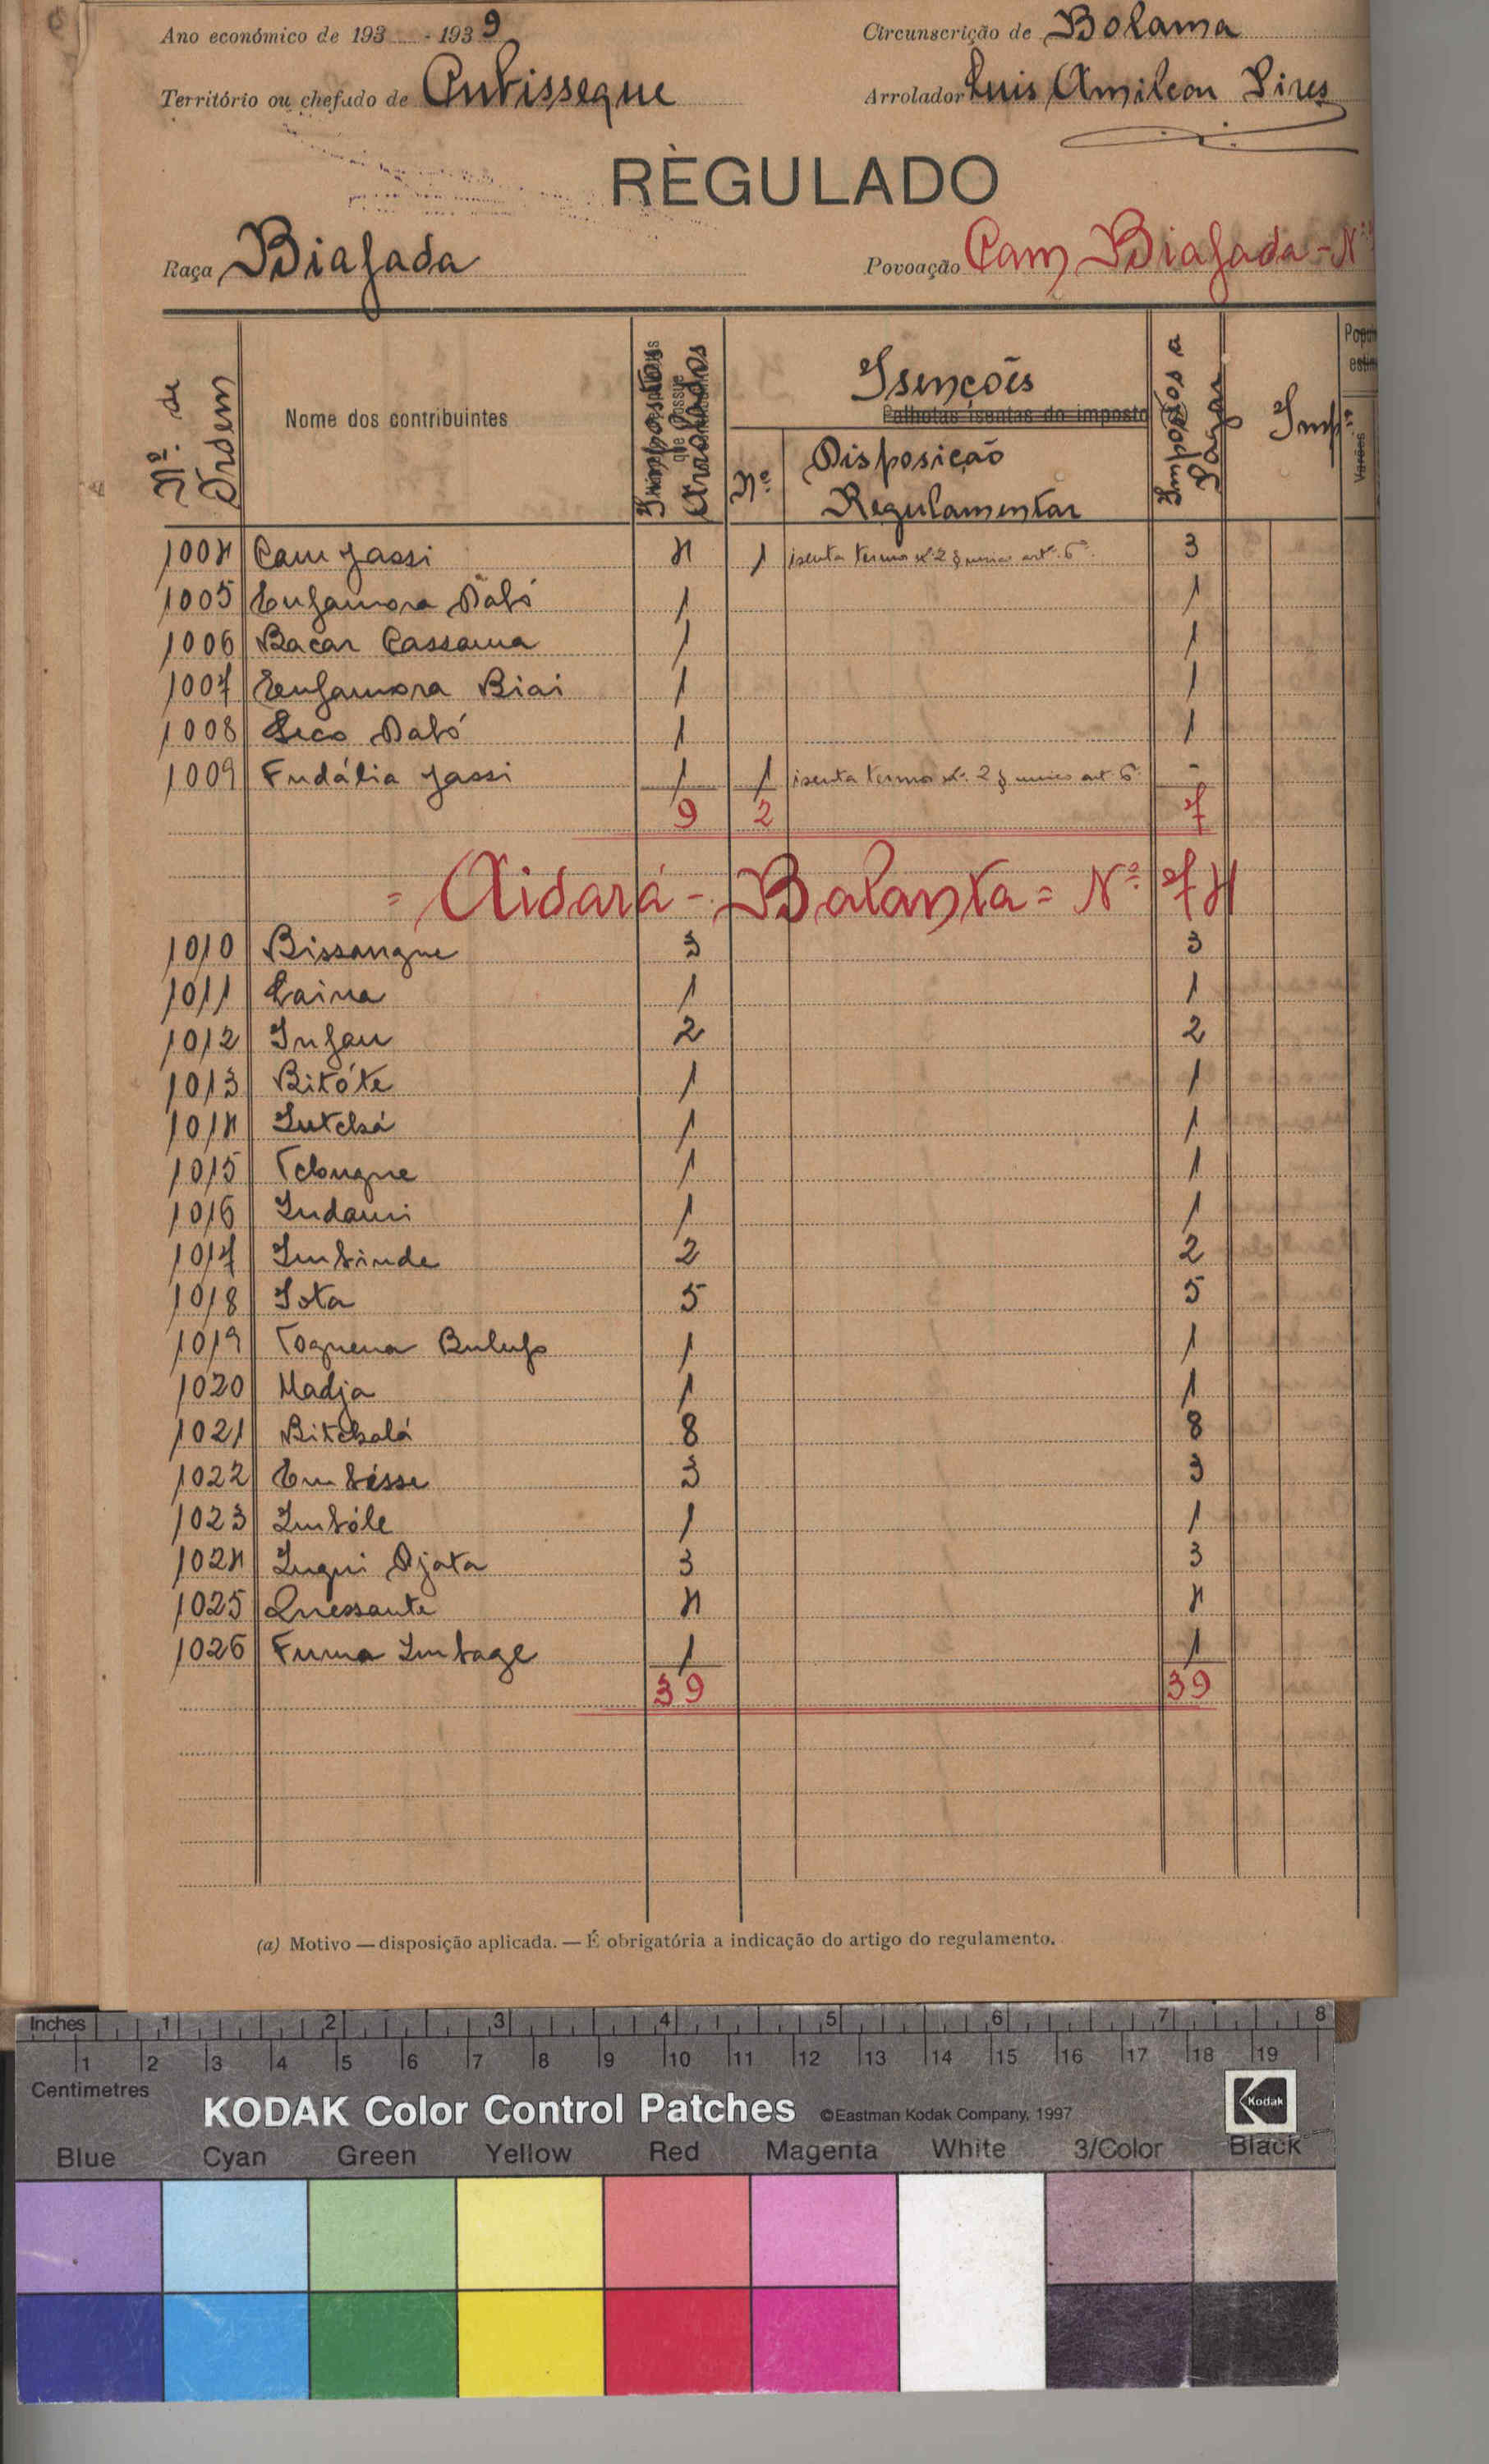 Ano económico de 193 - 1939 Circunscrição de Bolama
Território ou chefado de Cubisseque Arrolador Luis Amilcon Pires
RÈGULADO
Raça Biafada Povoação Cam Biafada - Nº
Nº. de Ordem Nome dos contribuintes Impostos Arrolados Isenções Impostos a Pagar
Palhotas isentas do imposto
Nº Disposição Regulamentar
1004 Cam Jassi 4 1 isenta termo nº 2 § unico artº. 6º. 3
1005 Enfamora Dabó 1 1
1006 Bacar Cassama 1 1
1007 Enfamora Biai 1 1
1008 Seco Dabó 1 1
1009 Fudália Jassi 1 1 isenta termo nº. 2 § unico art. 6º. -
9 2 7
= Aidará - Balanta = Nº. 74
1010 Bissangue 3 3
1011 Caina 1 1
1012 Infau 2 2
1013 Bitóte 1 1
1014 Intchá 1 1
1015 Tchugue 1 1
1016 Indami 1 1
1017 Imbinde 2 2
1018 Iota 5 5
1019 Toguena Bulufo 1 1
1020 Madja 1 1
1021 Bitchalá 8 8
1022 Embésse 3 3
1023 Imbóle 1 1
1024 Ingui Djata 3 3
1025 Quessante 4 4
1026 Fuma Imbage 1 1
39 39
(a) Motivo — disposição aplicada. — É obrigatória a indicação do artigo do regulamento.
Inches 1 2 3 4 5 6 7 8
1 2 3 4 5 6 7 8 9 10 11 12 13 14 15 16 17 18 19
Centimetres
KODAK Color Control Patches ©Eastman Kodak Company, 1997 Kodak
Blue Cyan Green Yellow Red Magenta White 3/Color Black